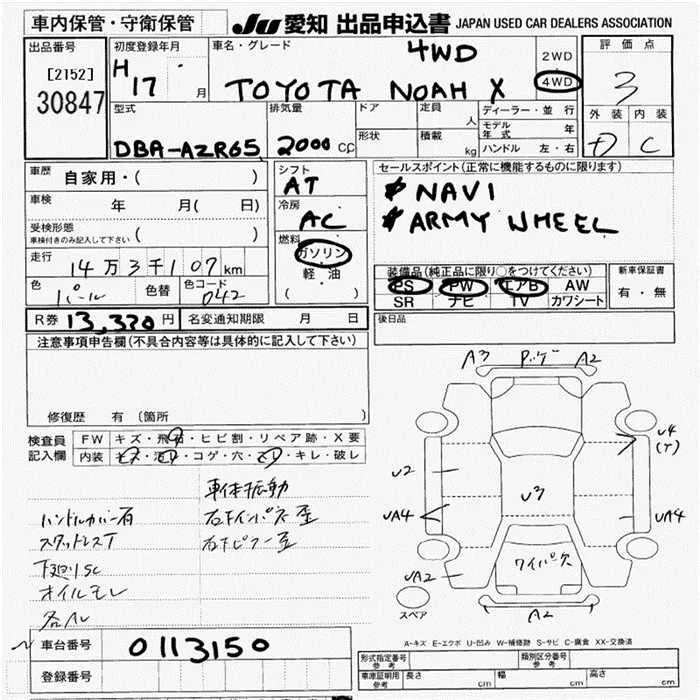 車内保管・守衛保管
JU 愛知 出品申込書 JAPAN USED CAR DEALERS ASSOCIATION
出品番号
[2152]
30847
初度登録年月
H 17 ・ 月
車名・グレード
4WD
TOYOTA NOAH X
2WD
4WD
評価点
3
外装 内装
D C
型式
DBA-AZR65
排気量
2000 CC
ドア
形状
定員 人
積載 kg
ディーラー・並 行
モデル年式 年
ハンドル 左・右
車歴 自家用・( )
車検 年 月( 日)
受検形態
車検付きのみ記入して下さい ( )
走行 14万3千107km
色 パール 色替 色コード 042
シフト
AT
冷房
AC
燃料
ガソリン
軽・油
( )
セールスポイント(正常に機能するものに限ります)
NAVI
ARMY WHEEL
装備品(純正品に限り○をつけてください)
PS PW エアB AW
SR ナビ TV カワシート
新車保証書
有・無
R券 13,320円 名変通知期限 月 日
後日品
注意事項申告欄(不具合内容等は具体的に記入して下さい)
修復歴 有 (箇所 )
検査員記入欄
FW キズ・飛石・ヒビ割・リペア跡・X要
内装 キズ・汚レ・コゲ・穴・スレ・キレ・破レ
車体振動
ハンドルカバー有
スタッドレスT
下廻りSC
オイルモレ
A3 A2
U4
(T)
U2
U3
UA4 UA4
ワイパー欠
UA2
スペア
A2
A-キズ E-エクボ U-凹み W-補修跡 S-サビ C-腐食 XX-交換済
車台番号 0113150
登録番号
形式指定番号 参考
類別区分番号 参考
車庫証明用 参考 長さ cm 幅 cm 高さ cm